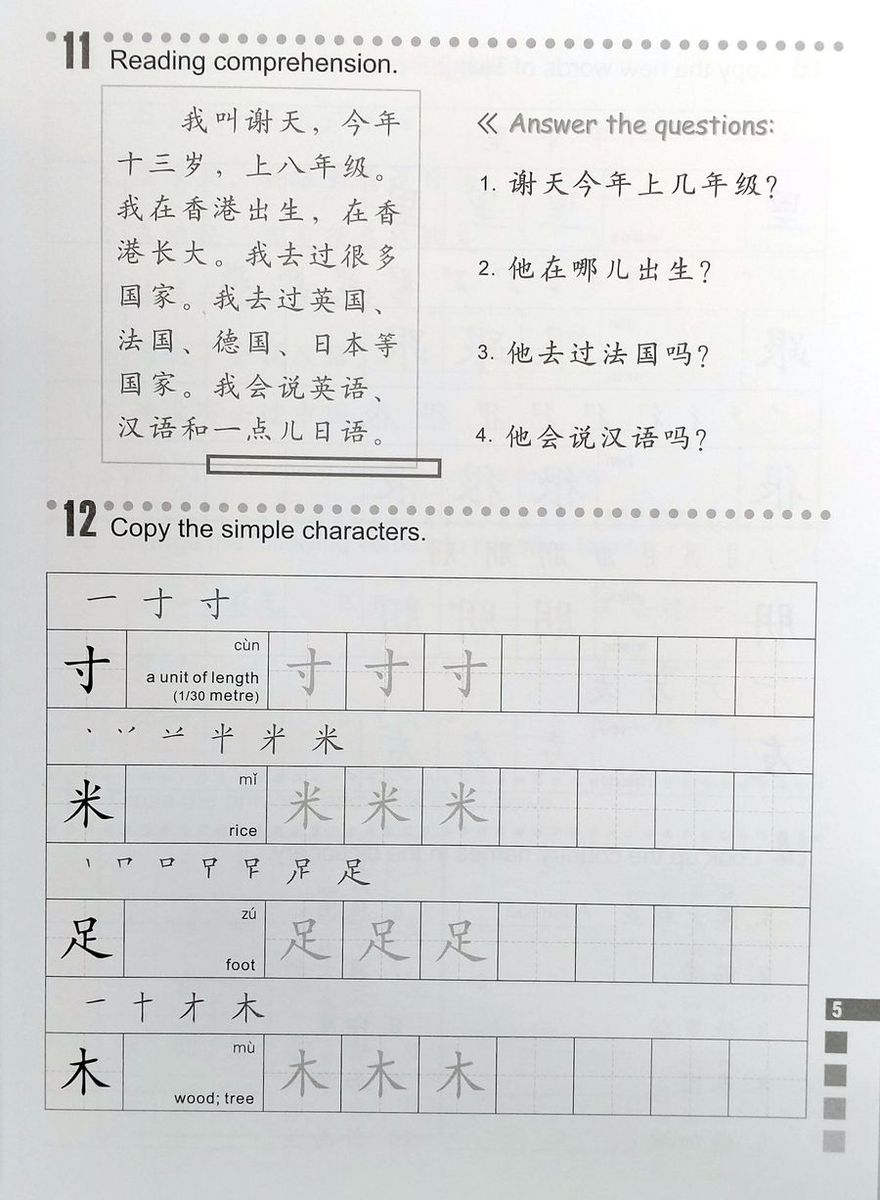 11 Reading comprehension.
我叫谢天，今年
十三岁，上八年级。
我在香港出生，在香
港长大。我去过很多
国家。我去过英国、
法国、德国、日本等
国家。我会说英语、
汉语和一点儿日语。
« Answer the questions:
1. 谢天今年上几年级?
2. 他在哪儿出生?
3. 他去过法国吗?
4. 他会说汉语吗?
12 Copy the simple characters.
一 寸 寸
寸 cùn
a unit of length
(1/30 metre)
寸 寸 寸
米
米 mǐ
rice
米 米 米
足
足 zú
foot
足 足 足
一 十 才 木
木 mù
wood; tree
木 木 木
5